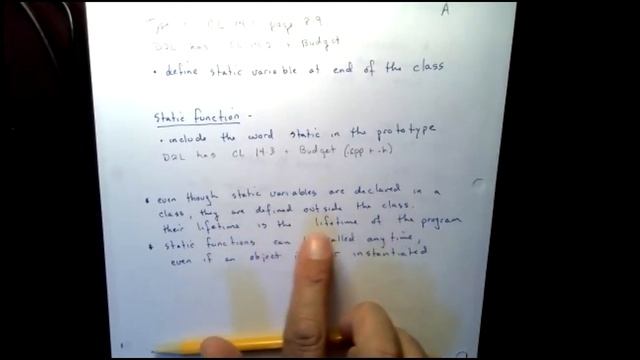 A
Type in CL 14. page 89
D2L has CL 14.2 + Budget
• define static variable at end of the class
Static function -
• include the word static in the prototype
D2L has CL 14.3 + Budget (.cpp + .h)
• even though static variables are declared in a
class, they are defined outside the class.
their lifetime is the lifetime of the program
• static functions can called any time,
even if an object instantiated